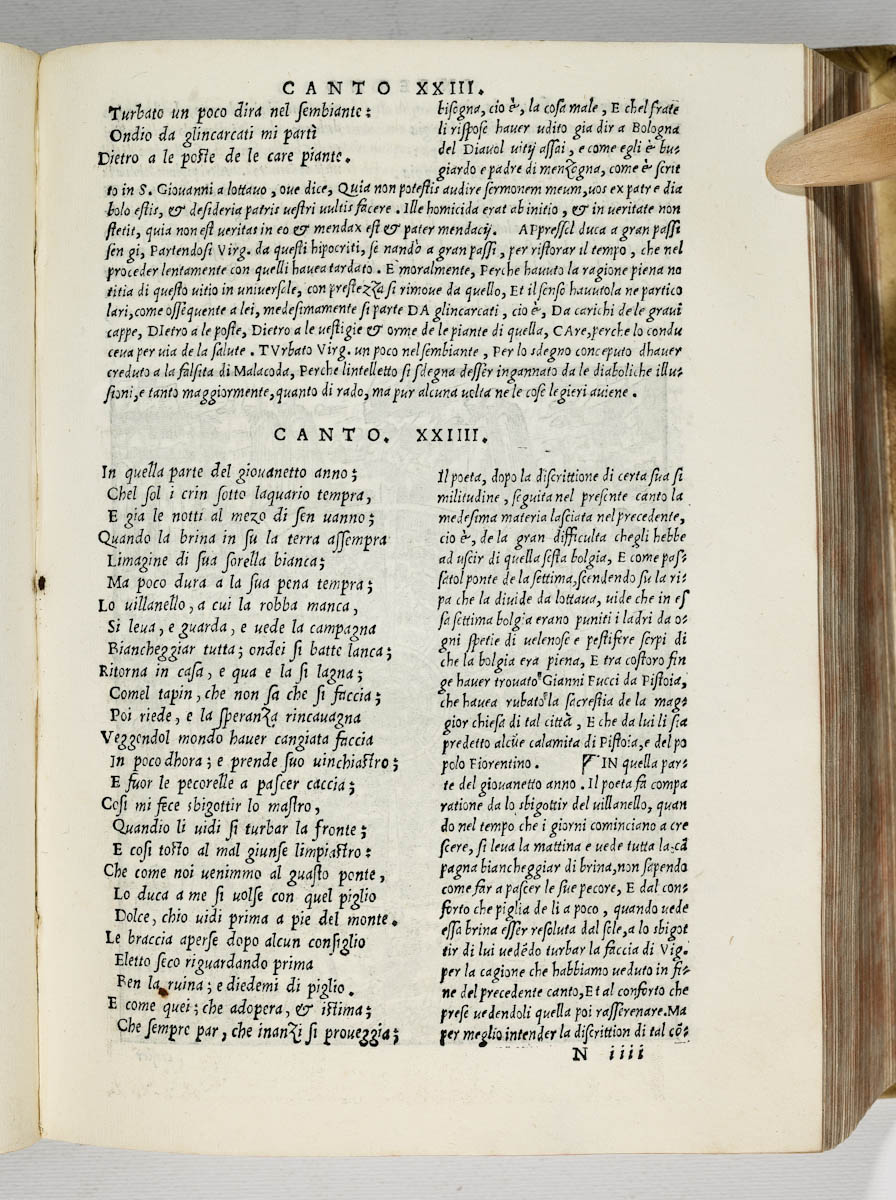 CANTO XXIII.
Turbato un poco dira nel ſembiante:
Ondio da glincarcati mi partì
Dietro a le poſte de le care piante.
biſegna, cio è, la coſa male, E chel frate
li riſpoſe hauer udito gia dir a Bologna
del Diauol uitij aſſai, e come egli è bu-
giardo e padre di menzegna, come è ſcrit
to in S. Giouanni a lottauo, oue dice, Quia non poteſtis audire ſermonem meum, uos ex patre dia
bolo eſtis, & deſideria patris ueſtri uultis facere. Ille homicida erat ab initio, & in ueritate non
ſtetit, quia non eſt ueritas in eo & mendax eſt & pater mendacij. APpreſſol duca a gran paſſi
ſen gi, Partendoſi Virg. da queſti hipocriti, ſe nandò a gran paſſi, per riſtorar il tempo, che nel
proceder lentamente con quelli hauea tardato. E moralmente, Perche hauuto la ragione piena no
titia di queſto uitio in uniuerſale, con preſtezza ſi rimoue da quello, Et il ſenſo hauutola ne partico
lari, come oſſequente a lei, medeſimamente ſi parte DA glincarcati, cio è, Da carichi de le graui
cappe, DIetro a le poſte, Dietro a le ueſtigie & orme de le piante di quella, CAre, perche lo condu
ceua per uia de la ſalute. TVrbato Virg. un poco nel ſembiante, Per lo ſdegno conceputo dhauer
creduto a la falſita di Malacoda, Perche lintelletto ſi ſdegna deſſer ingannato da le diaboliche illu-
ſioni, e tanto maggiormente, quanto di rado, ma pur alcuna uolta ne le coſe legieri auiene.
CANTO. XXIIII.
In quella parte del giouanetto anno;
Chel ſol i crin ſotto laquario tempra,
E gia le notti al mezo di ſen uanno;
Quando la brina in ſu la terra aſſempra
Limagine di ſua ſorella bianca;
Ma poco dura a la ſua pena tempra;
Lo uillanello, a cui la robba manca,
Si leua, e guarda, e uede la campagna
Biancheggiar tutta; ondei ſi batte lanca;
Ritorna in caſa, e qua e la ſi lagna;
Comel tapin, che non ſa che ſi faccia;
Poi riede, e la ſperanza rincauagna
Veggendol mondo hauer cangiata faccia
In poco dhora; e prende ſuo uinchiaſtro;
E fuor le pecorelle a paſcer caccia;
Coſi mi fece sbigottir lo maſtro,
Quandio li uidi ſi turbar la fronte;
E coſi toſto al mal giunſe limpiaſtro:
Che come noi uenimmo al guaſto ponte,
Lo duca a me ſi uolſe con quel piglio
Dolce, chio uidi prima a pie del monte.
Le braccia aperſe dopo alcun conſiglio
Eletto ſeco riguardando prima
Ben la ruina; e diedemi di piglio.
E come quei; che adopera, & iſtima;
Che ſempre par, che inanzi ſi proueggia;
Il poeta, dopo la diſcrittione di certa ſua ſi
militudine, ſeguita nel preſente canto la
medeſima materia laſciata nel precedente,
cio è, de la gran difficulta chegli hebbe
ad uſcir di quella ſeſta bolgia, E come paſ-
ſatol ponte de la ſettima, ſcendendo ſu la ri-
pa che la diuide da lottaua, uide che in eſ
ſa ſettima bolgia erano puniti i ladri da o-
gni ſpetie di uelenoſe e peſtifere ſerpi di
che la bolgia era piena, E tra coſtoro fin
ge hauer trouato Gianni Fucci da Piſtoia,
che hauea rubato la ſacreſtia de la mag-
gior chieſa di tal città, E che da lui li ſia
predetto alcũe calamita di Piſtoia, e del po
polo Fiorentino. IN quella par-
te del giouanetto anno. Il poeta fa compa
ratione da lo sbigottir del uillanello, quan
do nel tempo che i giorni cominciano a cre
ſcere, ſi leua la mattina e uede tutta la cã
pagna biancheggiar di brina, non ſapendo
come far a paſcer le ſue pecore, E dal con-
forto che piglia de li a poco, quando uede
eſſa brina eſſer reſoluta dal ſole, a lo sbigot
tir di lui uedẽdo turbar la faccia di Vig.
per la cagione che habbiamo ueduto in fi-
ne del precedente canto, Et al conforto che
preſe uedendoli quella poi raſſerenare. Ma
per meglio intender la diſcrittion di tal cõ-
N iiii